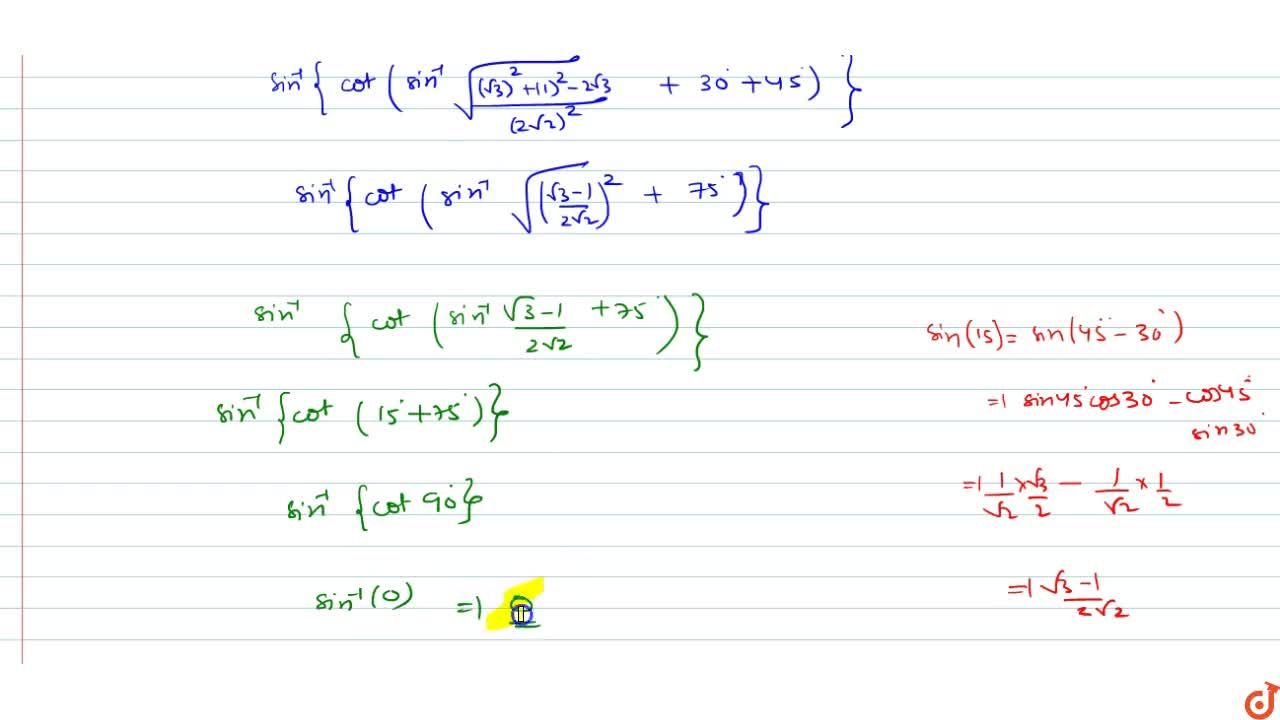 sin⁻¹{ cot ( sin⁻¹ √((√3)² + (1)² − 2√3 / (2√2)²) + 30° + 45° ) }
sin⁻¹{ cot ( sin⁻¹ √((√3−1 / 2√2)²) + 75° ) }
sin⁻¹ { cot ( sin⁻¹ √3−1 / 2√2 + 75° ) }
sin⁻¹ { cot ( 15° + 75° ) }
sin⁻¹ { cot 90° }
sin⁻¹ (0) ⇒
sin(15) = sin(45° − 30°)
⇒ sin45° cos30° − cos45°
sin30°
⇒ 1/√2 × √3/2 − 1/√2 × 1/2
⇒ √3−1 / 2√2